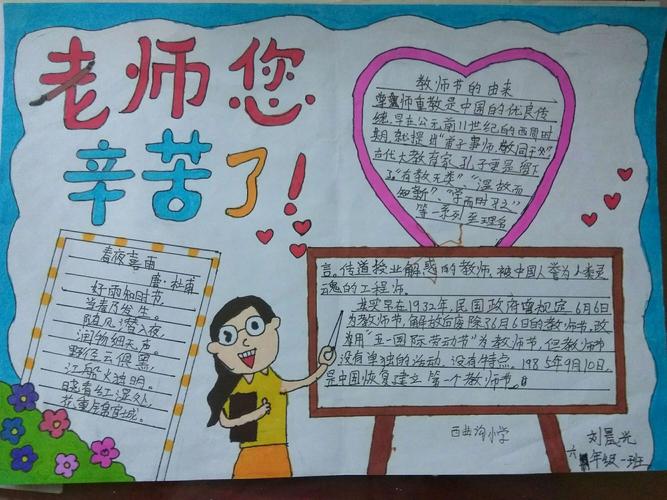 老师您
辛苦了!
教师节的由来
尊师重教是中国的优良传
统,早在公元前11世纪的西周时
期,就提出“弟子事师,敬同于父”
古代大教育家孔子更是留下
了“有教无类”、“温故而
知新”、“学而时习之”
等一系列至理名
言。传道授业解惑的教师,被中国人誉为人类灵
魂的工程师。
其实早在1932年,民国政府曾规定6月6日
为教师节,解放后废除了6月6日的教师节,改
为用“五一国际劳动节”为教师节,但教师节
没有单独的活动,没有特点。1985年9月10日,
是中国恢复建立第一个教师节。
春夜喜雨
唐·杜甫
好雨知时节,
当春乃发生。
随风潜入夜,
润物细无声。
野径云俱黑,
江船火独明。
晓看红湿处,
花重锦官城。
西曲沟小学
刘晨光
六年级一班